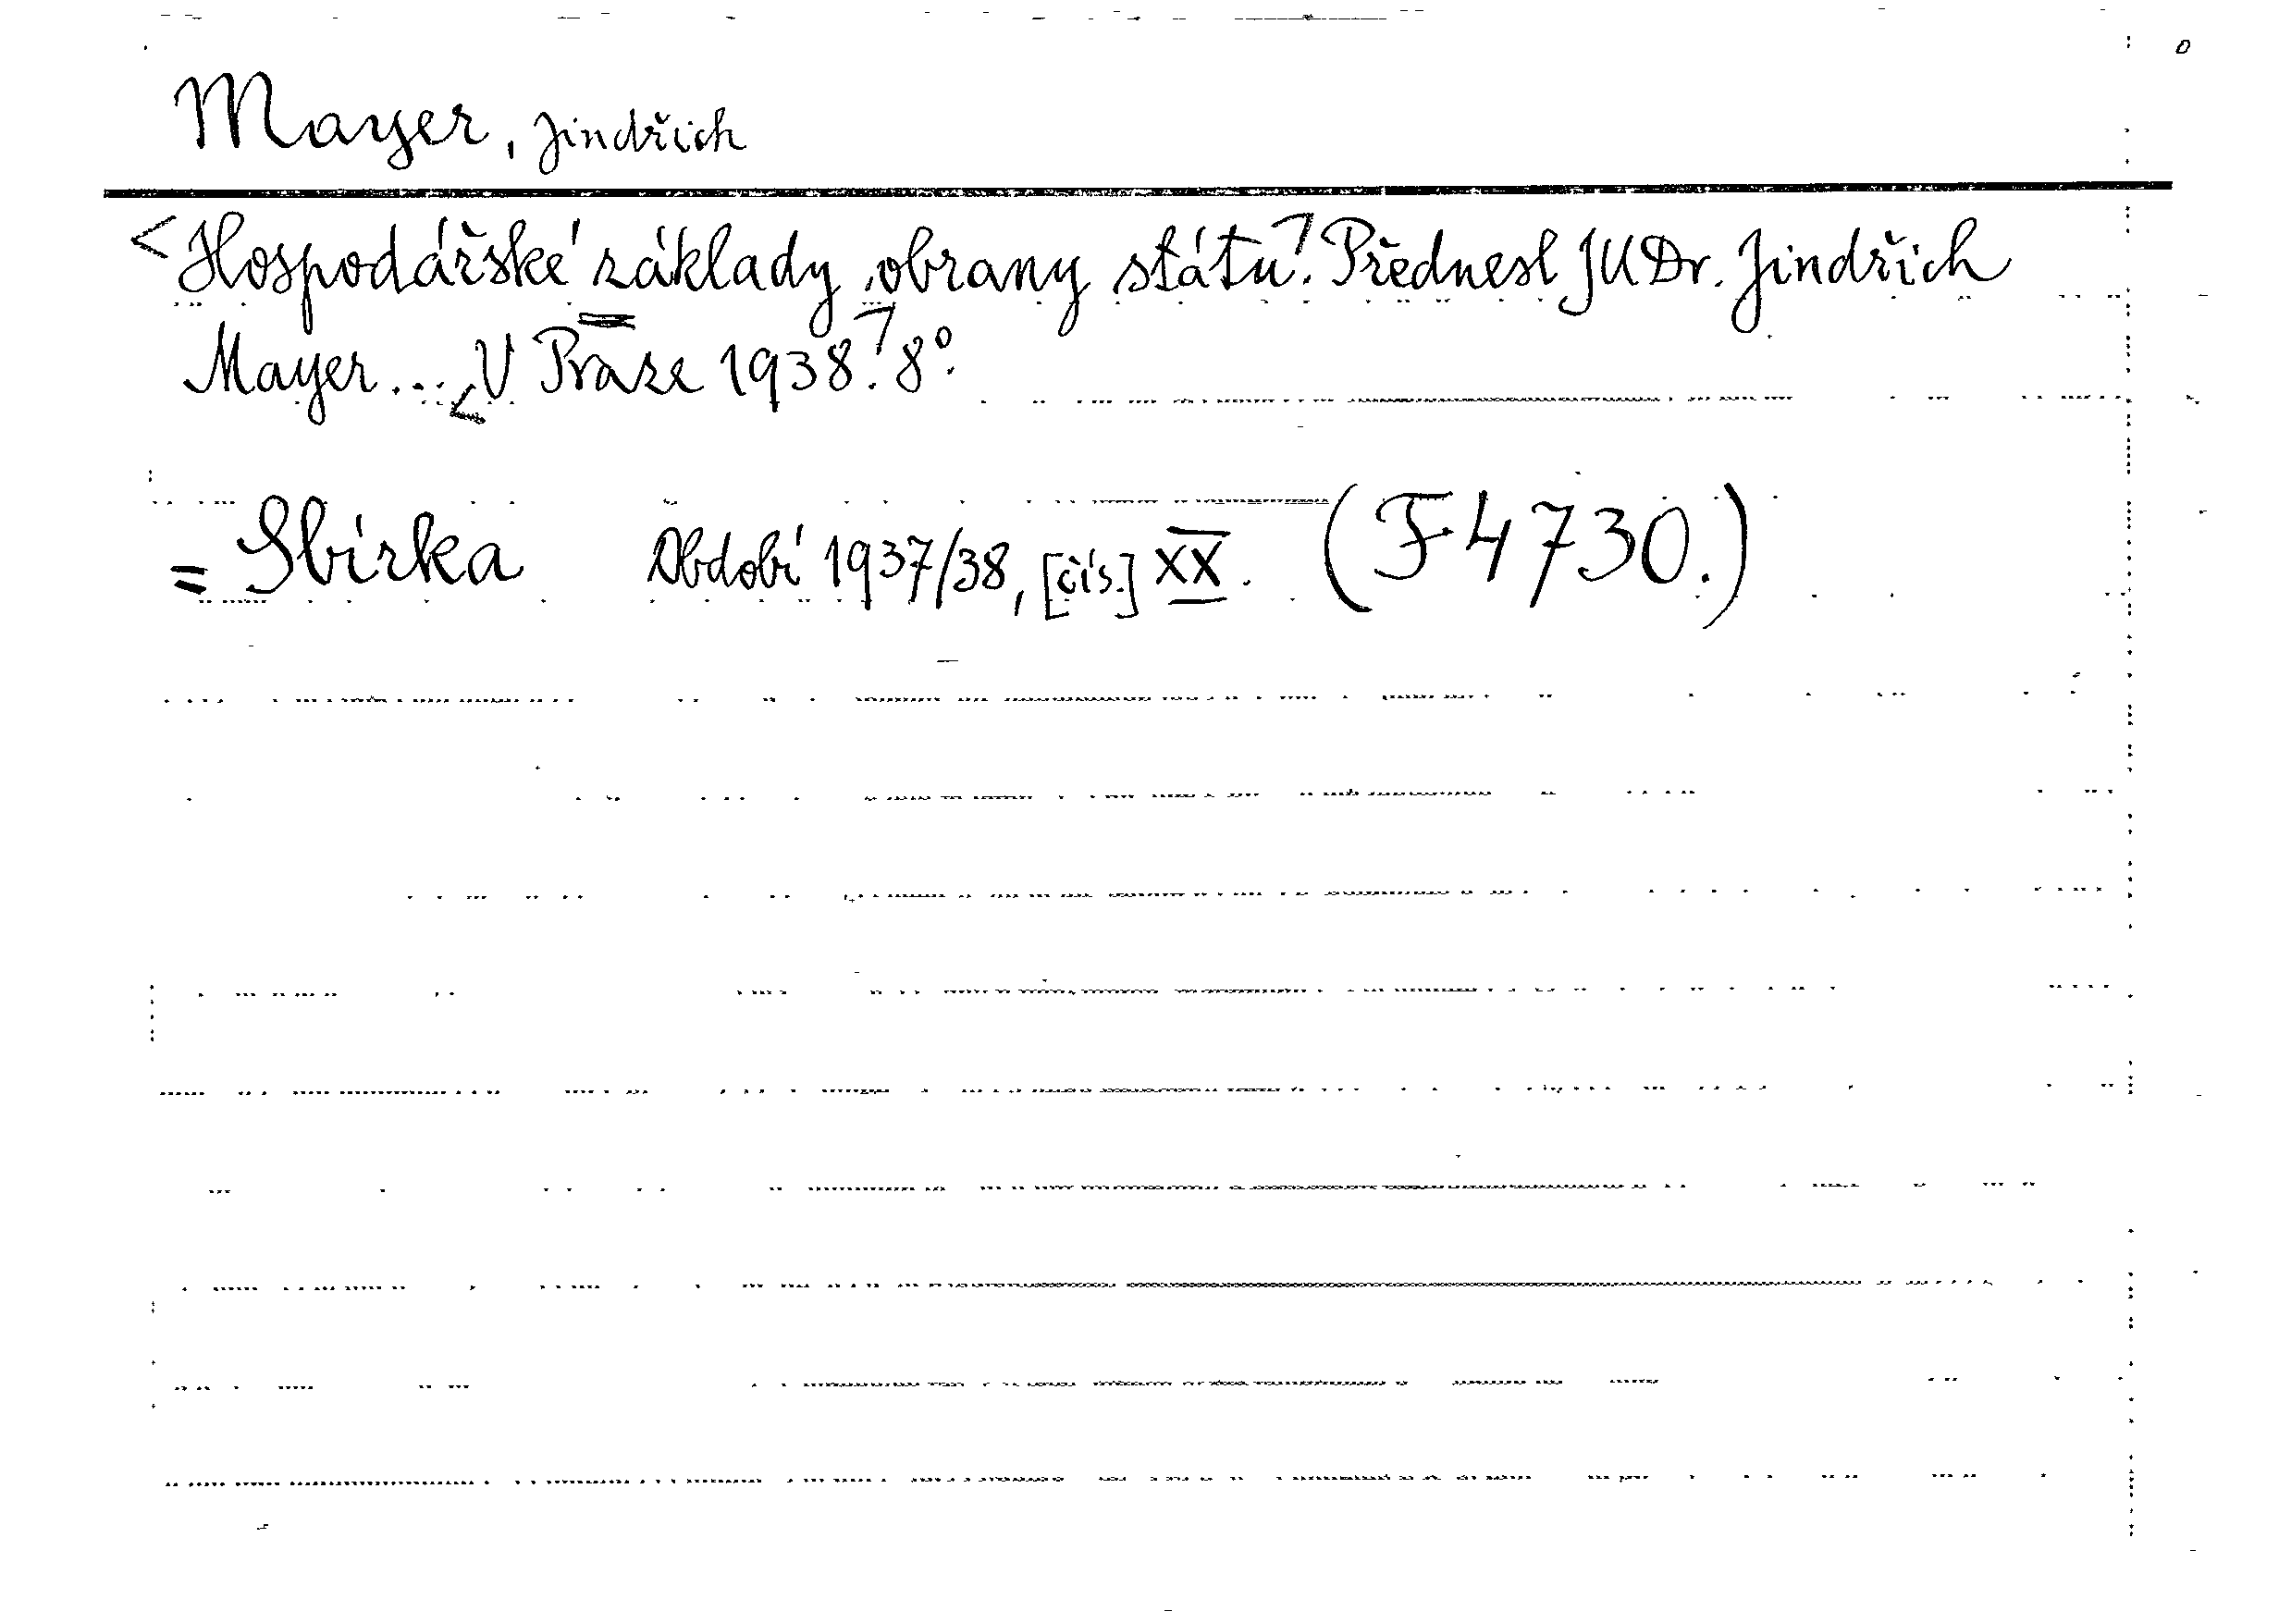 Mayer, Jindřich
<Hospodářské základy obrany státu.> Přednesl JUDr. Jindřich
Mayer... <V Praze 1938.> 8°.
= Sbírka Období 1937/38, [čís.] XX. (F 4730.)